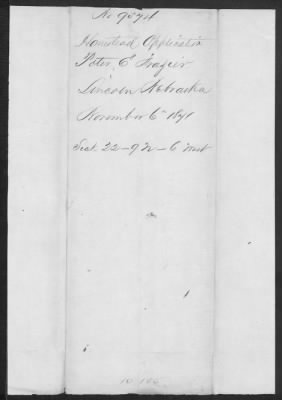 No 9574
Homestead Application
Peter C Frazeir
Lincoln Nebraska
November 6th 1871
Sect 22 - 9 N - 6 West